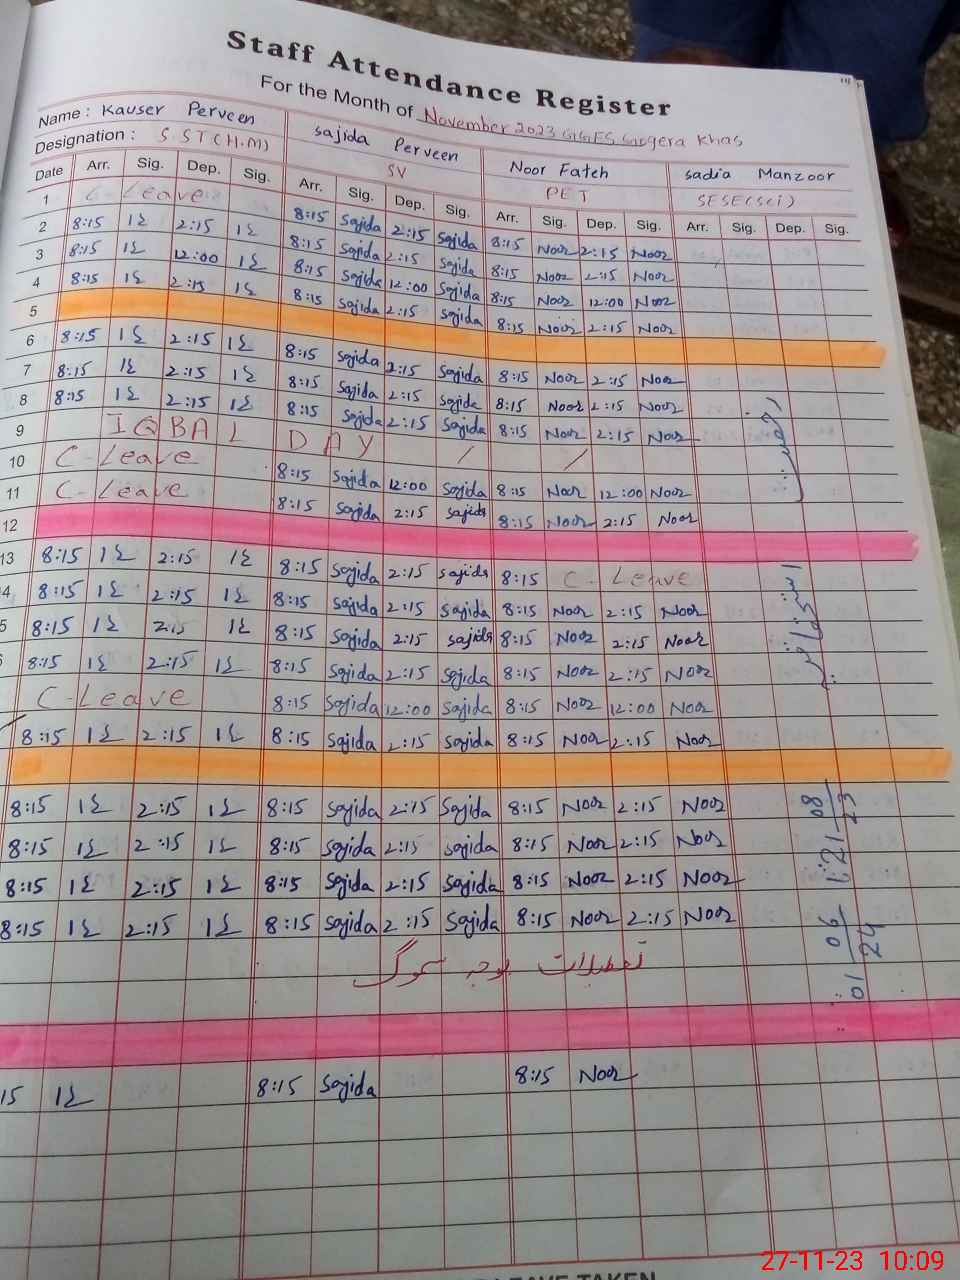 Staff Attendance Register
For the Month of November 2023 GGES Gogera Khas
Name : Kauser Perveen Sajida Perveen Noor Fateh Sadia Manzoor
Designation : S.ST (H.M) SV PET SESE(Sci)
Date Arr. Sig. Dep. Sig. Arr. Sig. Dep. Sig. Arr. Sig. Dep. Sig. Arr. Sig. Dep. Sig.
1 C-Leave 8:15 Sajida 2:15 Sajida 8:15 Noor 2:15 Noor
2 8:15 2:15 8:15 Sajida 2:15 Sajida 8:15 Noor 2:15 Noor
3 8:15 12:00 8:15 Sajida 12:00 Sajida 8:15 Noor 12:00 Noor
4 8:15 2:15 8:15 Sajida 2:15 Sajida 8:15 Noor 2:15 Noor
5
6 8:15 2:15 8:15 Sajida 2:15 Sajida 8:15 Noor 2:15 Noor
7 8:15 2:15 8:15 Sajida 2:15 Sajida 8:15 Noor 2:15 Noor
8 8:15 2:15 8:15 Sajida 2:15 Sajida 8:15 Noor 2:15 Noor
9 IQBAL DAY / /
10 C-Leave 8:15 Sajida 12:00 Sajida 8:15 Noor 12:00 Noor
11 C-Leave 8:15 Sajida 2:15 Sajida 8:15 Noor 2:15 Noor
12
13 8:15 2:15 8:15 Sajida 2:15 Sajida 8:15 C-Leave
4 8:15 2:15 8:15 Sajida 2:15 Sajida 8:15 Noor 2:15 Noor
5 8:15 2:15 8:15 Sajida 2:15 Sajida 8:15 Noor 2:15 Noor
8:15 2:15 8:15 Sajida 2:15 Sajida 8:15 Noor 2:15 Noor
C-Leave 8:15 Sajida 12:00 Sajida 8:15 Noor 12:00 Noor
8:15 2:15 8:15 Sajida 2:15 Sajida 8:15 Noor 2:15 Noor
8:15 2:15 8:15 Sajida 2:15 Sajida 8:15 Noor 2:15 Noor
8:15 2:15 8:15 Sajida 2:15 Sajida 8:15 Noor 2:15 Noor
8:15 2:15 8:15 Sajida 2:15 Sajida 8:15 Noor 2:15 Noor
8:15 2:15 8:15 Sajida 2:15 Sajida 8:15 Noor 2:15 Noor
تعطیلات بوجہ سموگ
15 8:15 Sajida 8:15 Noor
رخصت
21 08/23
01 06/24
LEAVE TAKEN
27-11-23 10:09